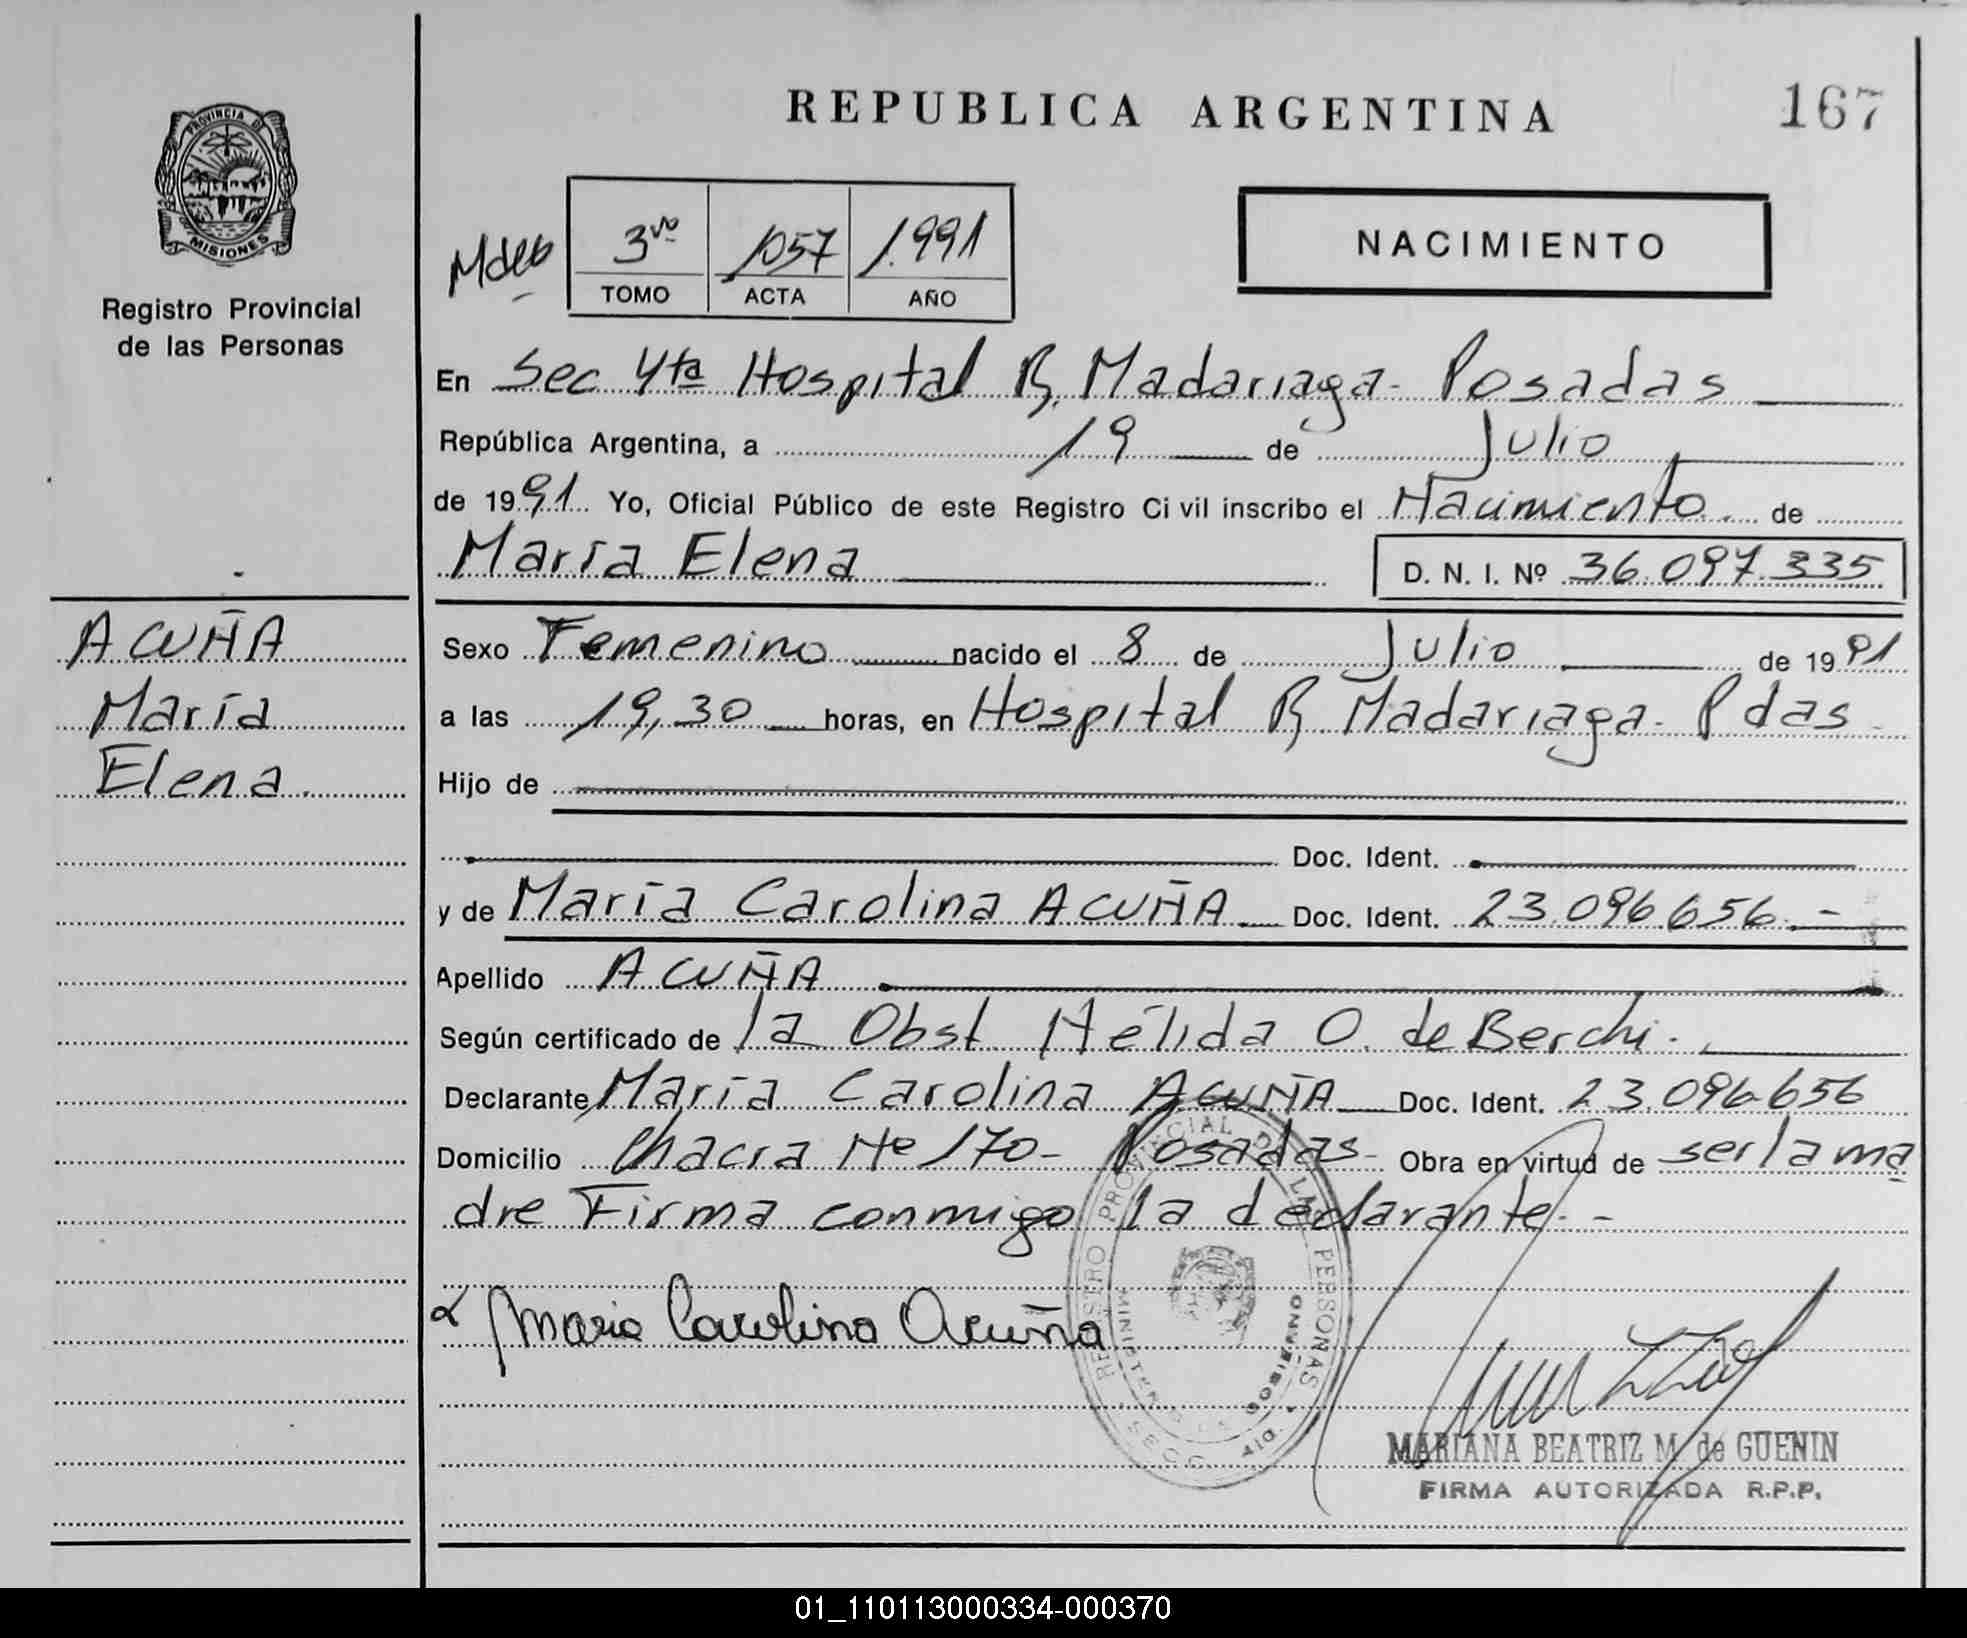 REPUBLICA ARGENTINA
167
PROVINCIA DE
MISIONES
Registro Provincial
de las Personas
3ro 1057 1.991
TOMO ACTA AÑO
NACIMIENTO
En Sec 4ta Hospital R. Madariaga - Posadas
República Argentina, a 19 de Julio
de 1991 Yo, Oficial Público de este Registro Civil inscribo el Nacimiento de
María Elena D. N. I. Nº 36.097.335
ACUÑA
María
Elena.
Sexo Femenino nacido el 8 de Julio de 1991
a las 19,30 horas, en Hospital R Madariaga - Pdas -
Hijo de
Doc. Ident.
y de María Carolina ACUÑA Doc. Ident. 23.096.656.-
Apellido ACUÑA
Según certificado de la Obst Nélida O. de Berchi.
Declarante María Carolina ACUÑA Doc. Ident. 23.096.656
Domicilio Chacra Nº 170 - Posadas - Obra en virtud de ser la ma
dre Firma conmigo la declarante. -
Maria Carolina Acuña
REGISTRO PROVINCIAL DE LAS PERSONAS
MINISTERIO DE GOBIERNO
MARIANA BEATRIZ M. de GUENIN
FIRMA AUTORIZADA R.P.P.
01_110113000334-000370